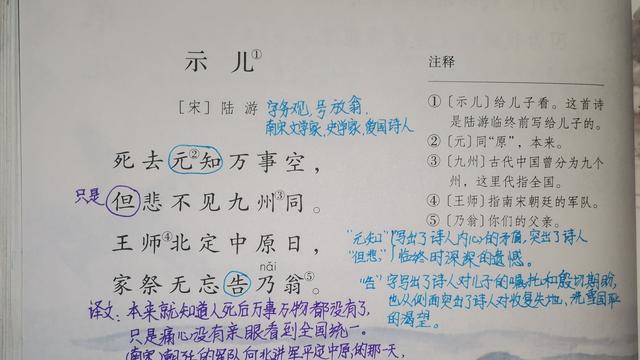 示儿①
[宋] 陆 游 字务观,号放翁,
南宋文学家,史学家,爱国诗人
死去元②知万事空,
只是 但悲不见九州③同。
王师④北定中原日,
nǎi
家祭无忘告乃翁⑤。
注释
①〔示儿〕给儿子看。这首诗
是陆游临终前写给儿子的。
②〔元〕同“原”,本来。
③〔九州〕古代中国曾分为九个
州,这里代指全国。
④〔王师〕指南宋朝廷的军队。
⑤〔乃翁〕你们的父亲。
“元知”
“但悲”
写出了诗人内心的矛盾,突出了诗人
临终时深深的遗憾。
“告”字写出了诗人对儿子的嘱托和殷切期盼,
也从侧面突出了诗人对收复失地,洗雪国耻
的渴望。
译文:本来就知道人死后万事万物都没有了,
只是痛心没有亲眼看到全国统一。
(南宋)朝廷的军队向北进军平定中原的那一天,